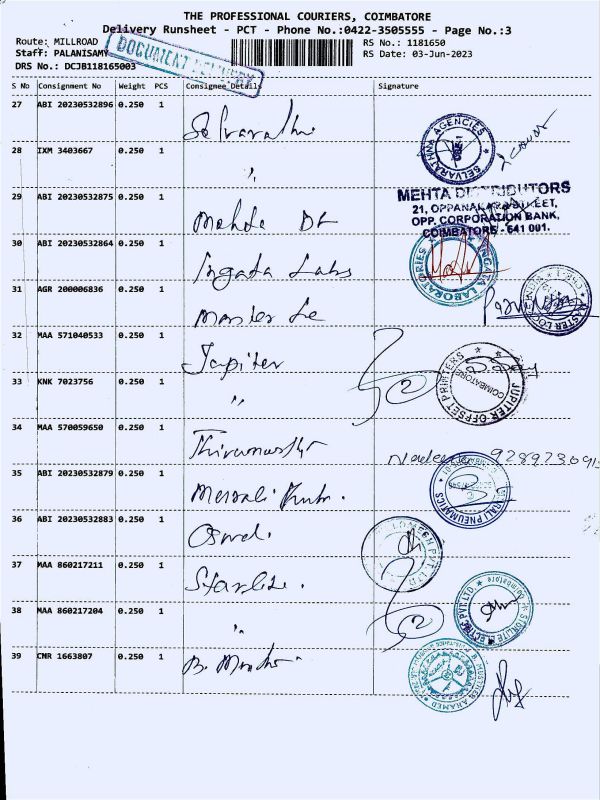 THE PROFESSIONAL COURIERS, COIMBATORE
Delivery Runsheet - PCT - Phone No.:0422-3505555 - Page No.:3
Route: MILLROAD RS No.: 1181650
Staff: PALANISAMY RS Date: 03-Jun-2023
DRS No.: DCJB118165003
DOCUMENT DELIVERY
S No Consignment No Weight PCS Consignee Details Signature
27 ABI 20230532896 0.250 1
SELVARATHNA AGENCIES
28 IXM 3403667 0.250 1
"
29 ABI 20230532875 0.250 1
MEHTA DISTRIBUTORS
21, OPPANAKARA STREET,
OPP. CORPORATION BANK,
COIMBATORE - 641 001.
30 ABI 20230532864 0.250 1 Ingata Labs
LABORATORIES
31 AGR 200006836 0.250 1 Master Lo
32 MAA 571040533 0.250 1 Jupiter
JUPITER OFFSET PRINTERS
COIMBATORE
33 KNK 7023756 0.250 1 "
34 MAA 570059650 0.250 1
35 ABI 20230532879 0.250 1
PNEUMATICS
36 ABI 20230532883 0.250 1
37 MAA 860217211 0.250 1 Starlite.
38 MAA 860217204 0.250 1 "
39 CMR 1663807 0.250 1